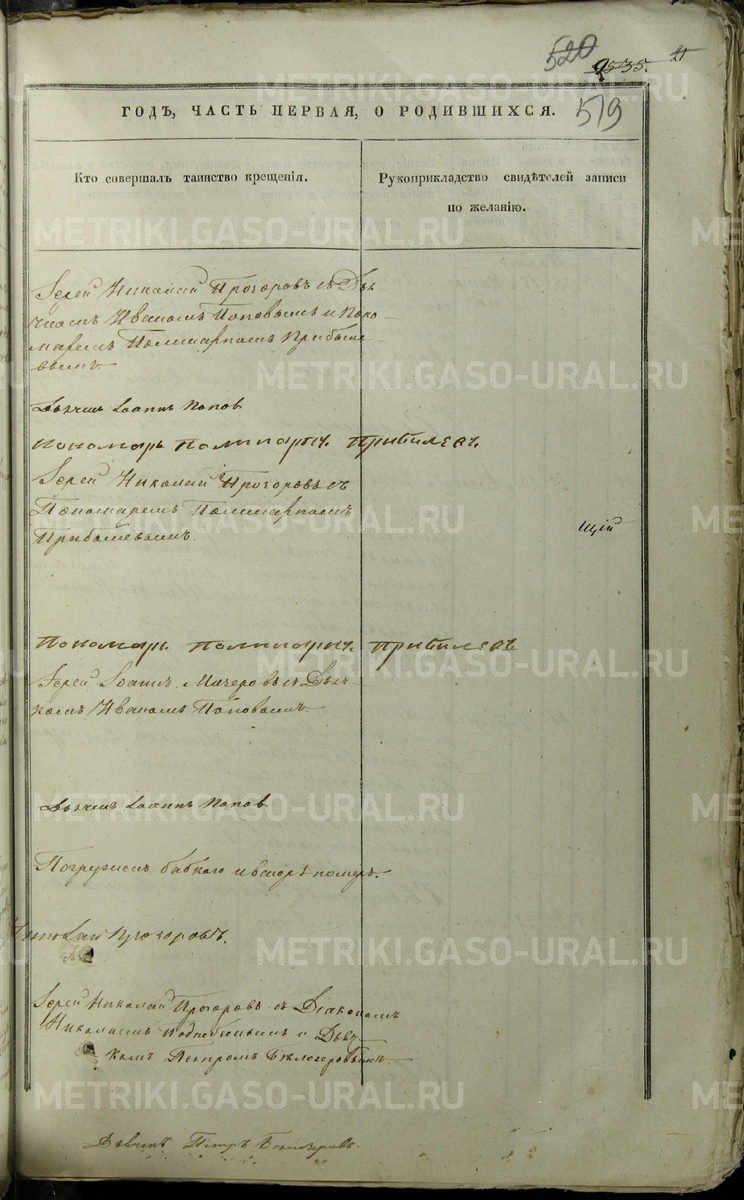 520
2535. 21
519
ГОДЪ, ЧАСТЬ ПЕРВАЯ, О РОДИВШИХСЯ.
Кто совершалъ таинство крещенія.
Рукоприкладство свидѣтелей записи
по желанію.
Іерей Николай Прозоровъ съ Дья-
чкомъ Иваномъ Поповымъ и Поно-
маремъ Поликарпомъ Прибыле-
вымъ.
Дьячекъ Іоаннъ Попов
Пономарь Поликарпъ Прибылевъ.
Іерей Николай Прозоровъ съ
Пономаремъ Поликарпомъ
Прибылевымъ.
щій
Пономарь Поликарпъ Прибылевъ
Іерей Іоаннъ съ Дьяч-
комъ Иваномъ Поповымъ
Дьячекъ Іоаннъ Попов
Погруженъ бабкою и вскорѣ померъ.
Николай Прозоровъ.
Іерей Николай Прозоровъ съ Діакономъ
Николаемъ и Дьяч-
комъ Петромъ
Дьячекъ Петръ
METRIKI.GASO-URAL.RU